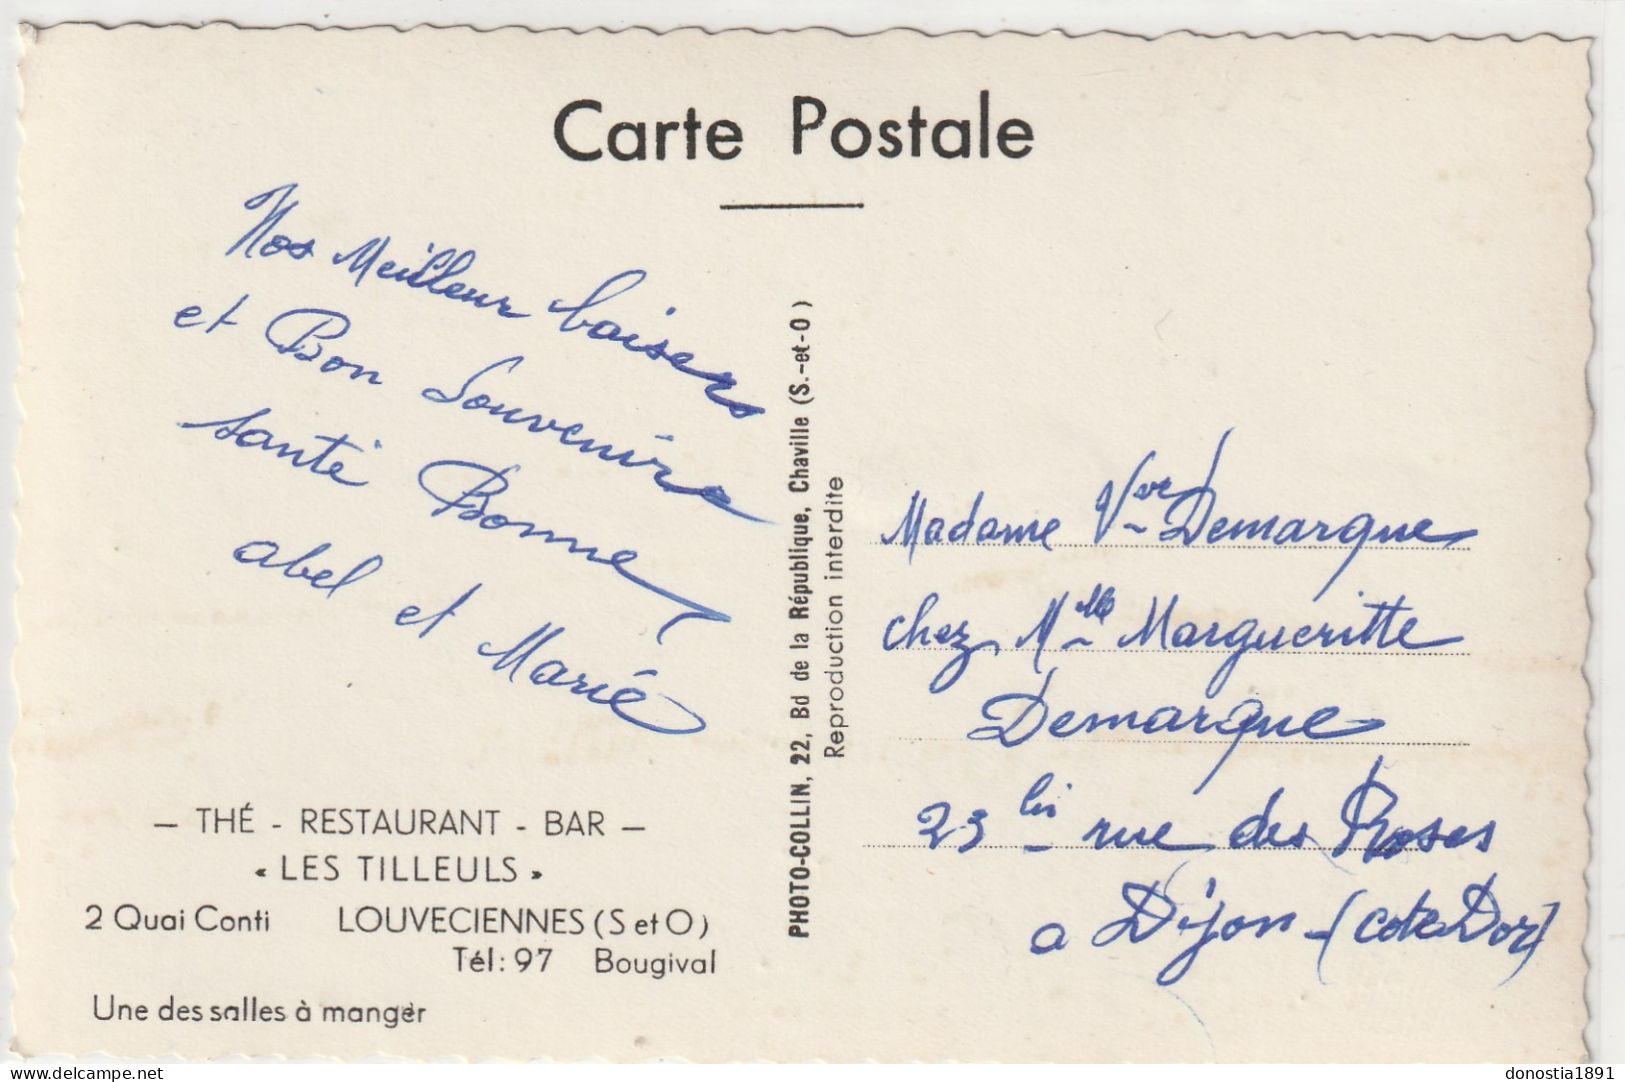 Carte Postale
Nos Meilleur baisers
et Bon Souvenire
santé Bonne
abel et Marié
— THÉ - RESTAURANT - BAR —
« LES TILLEULS »
2 Quai Conti LOUVECIENNES (S et O)
Tél: 97 Bougival
Une des salles à manger
PHOTO-COLLIN, 22, Bd de la République, Chaville (S.-et-O)
Reproduction interdite
Madame Vve Demarque
chez Mlle Margueritte
Demarque
23 bis rue des Roses
a Dijon - (cote Dor)
delcampe.net
donostia1891